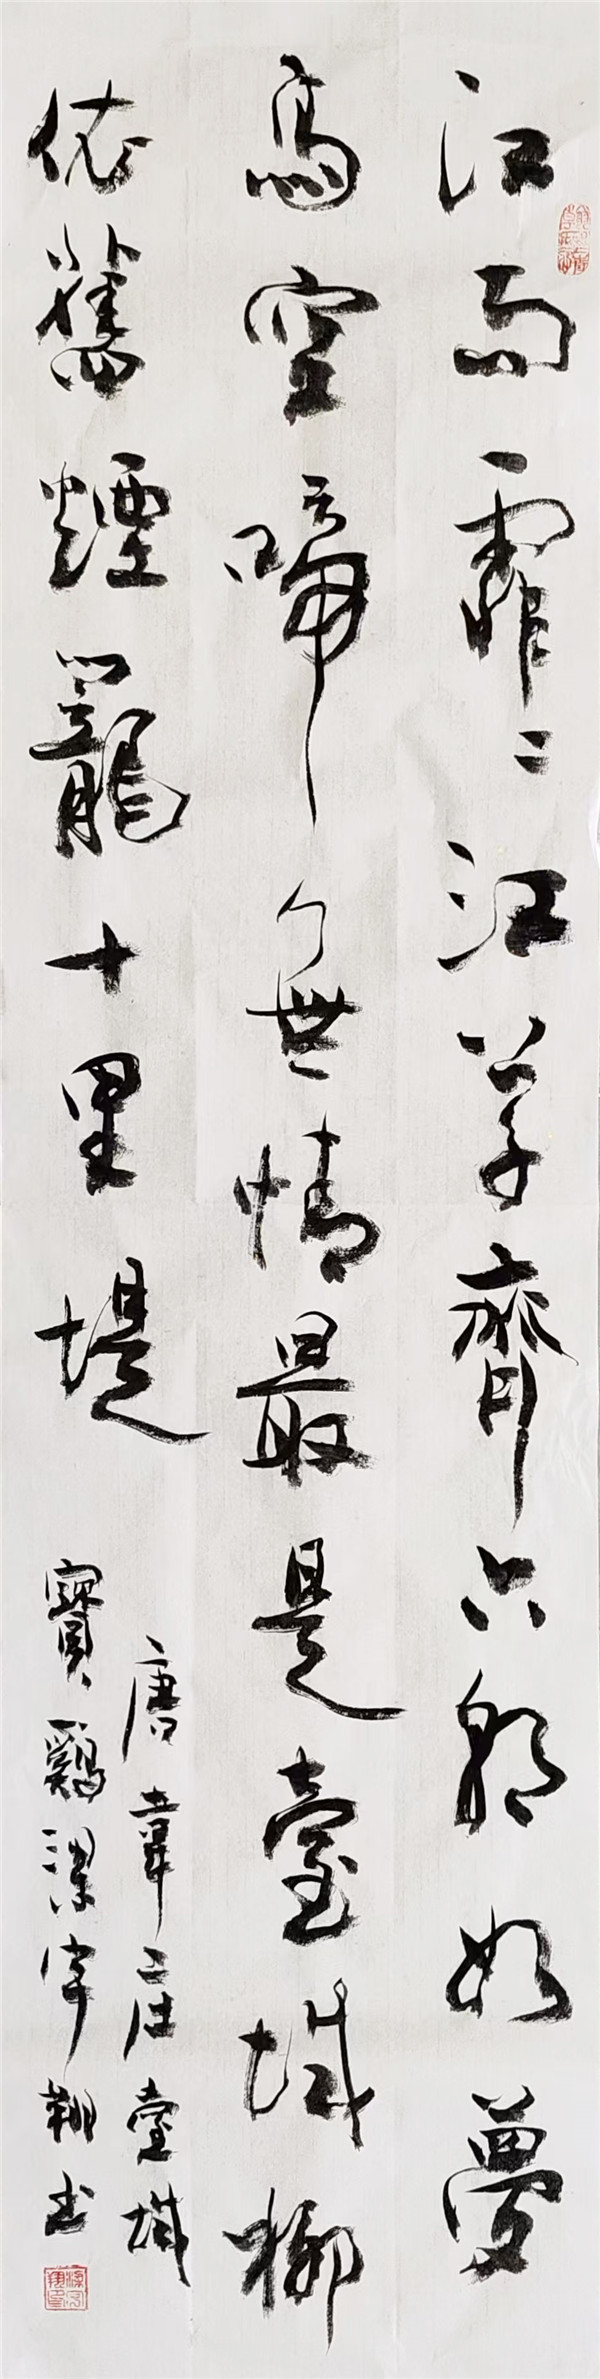 江雨霏二江草齊六朝如夢
鳥空啼無情最是臺城柳
依舊煙籠十里堤
唐韋莊臺城
寶鷄梁宇翔書